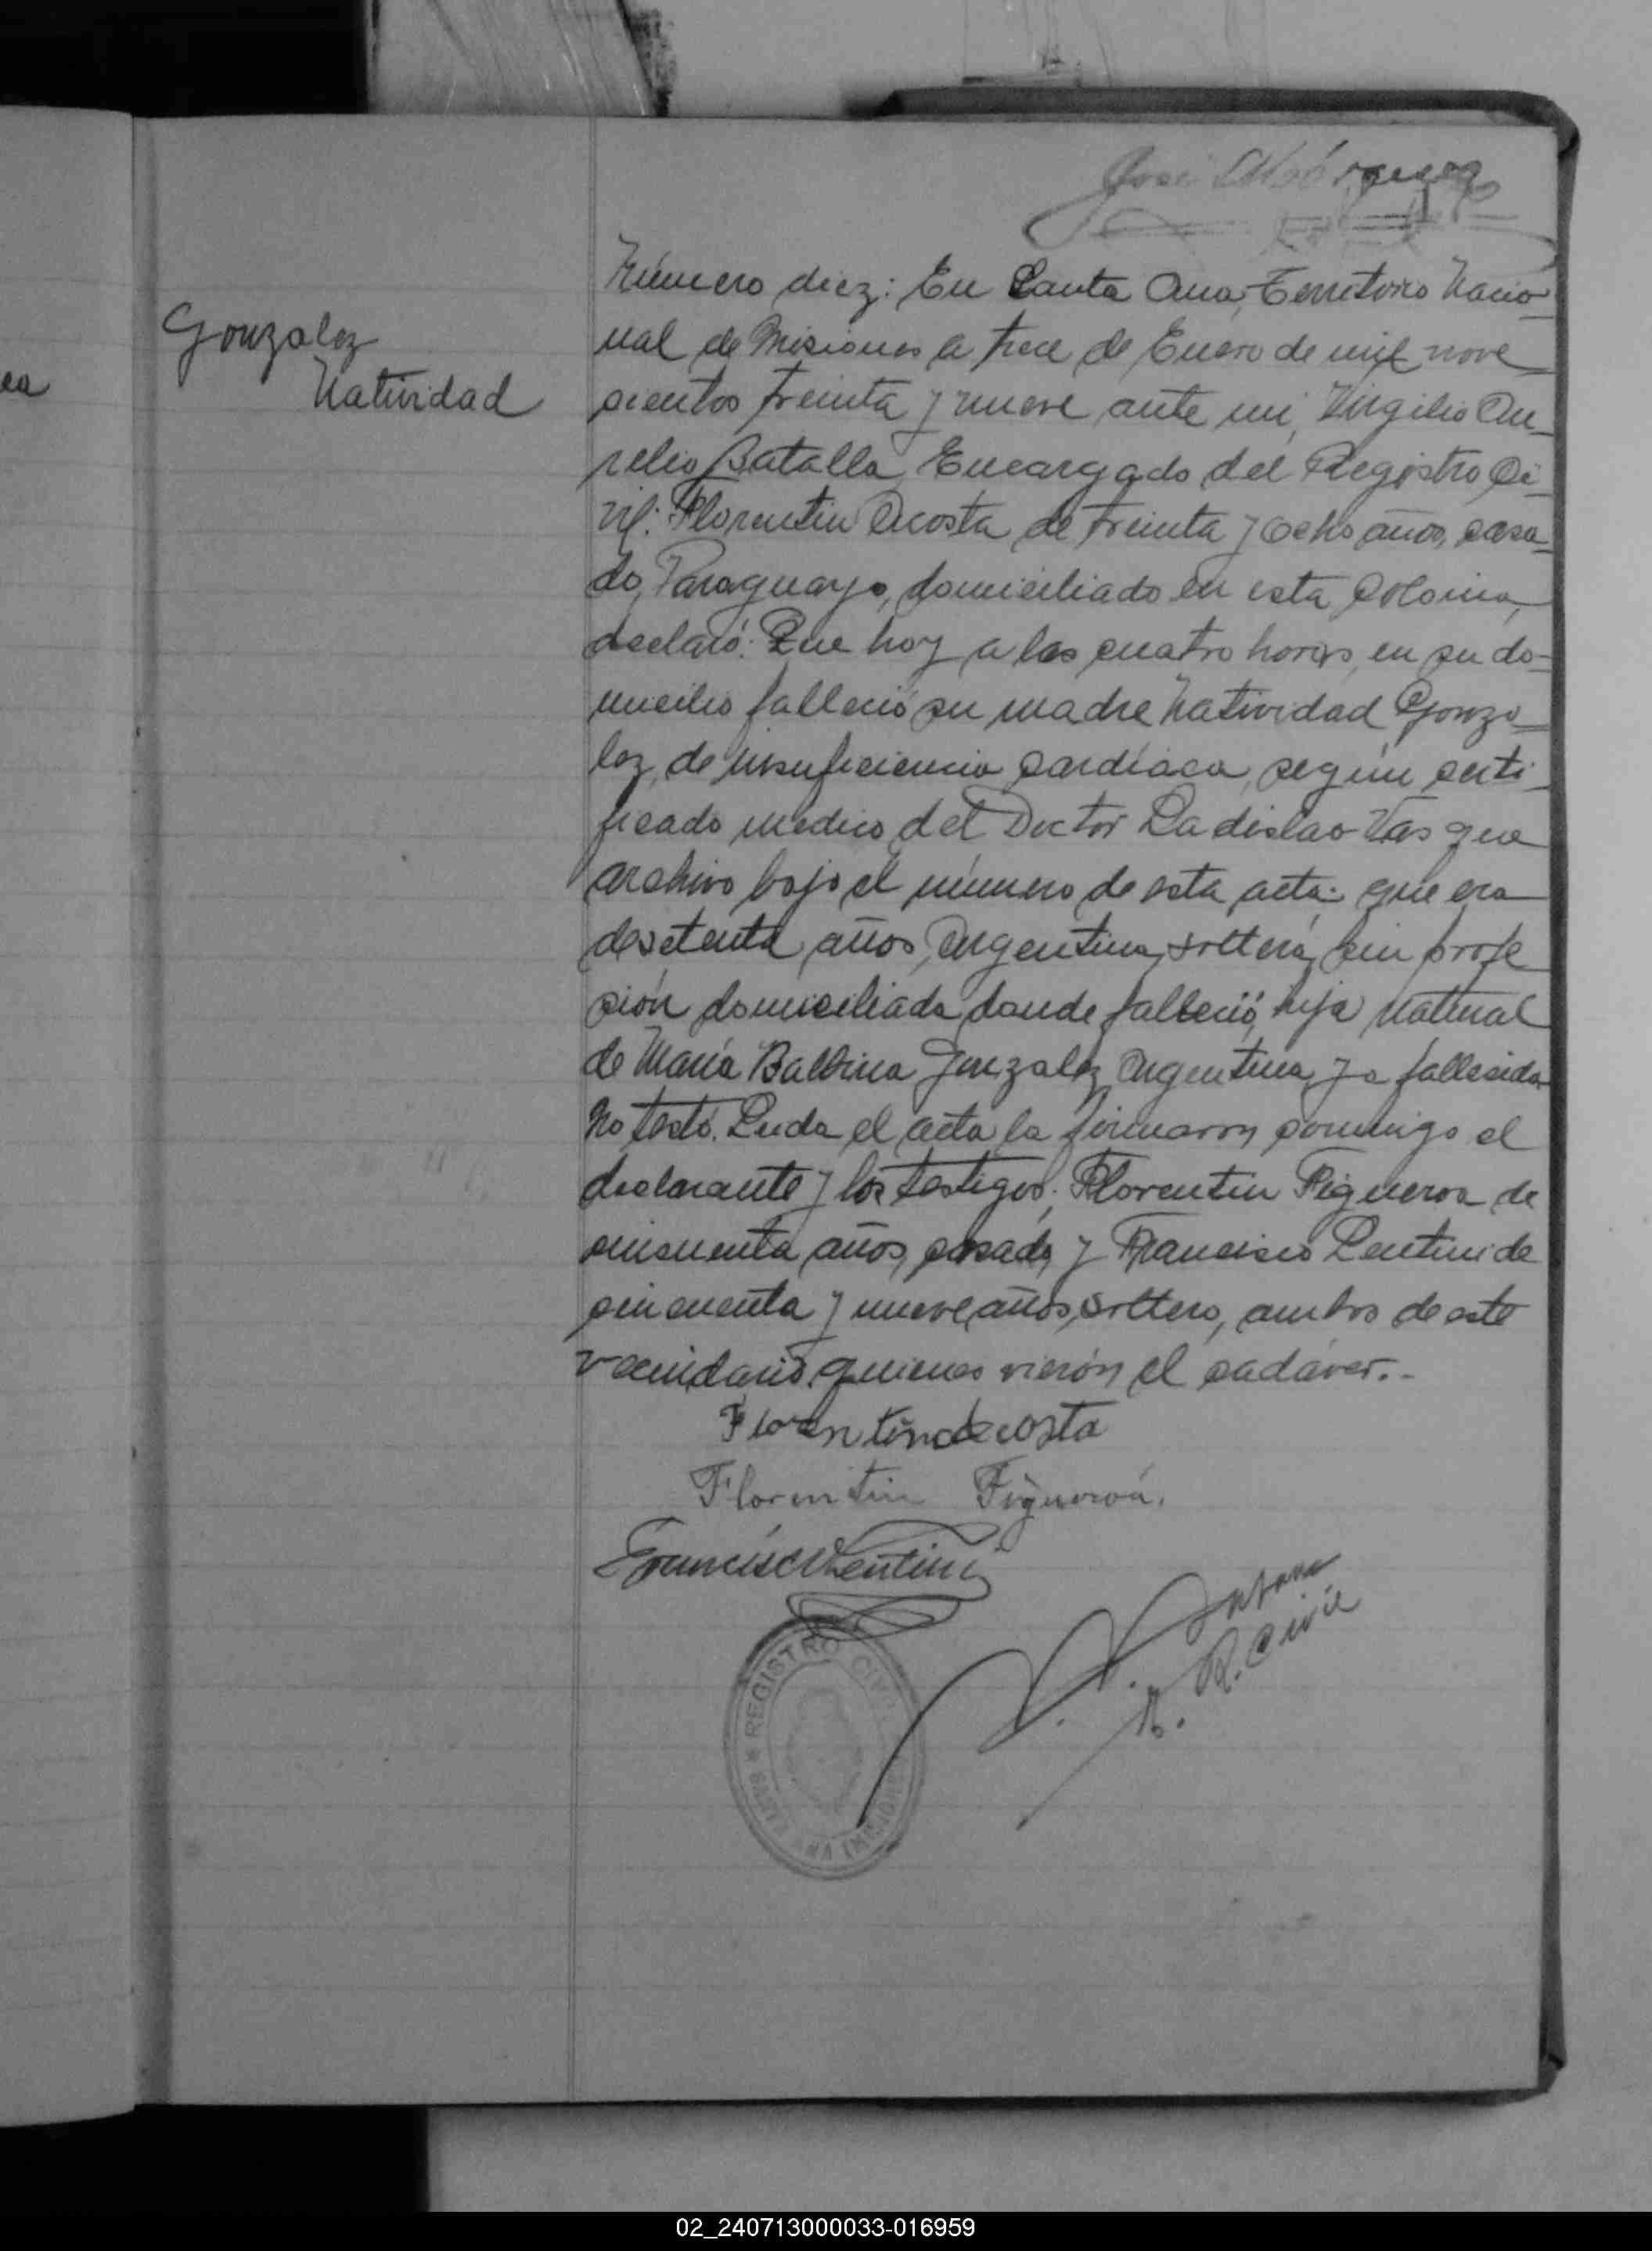 Gonzalez
Natividad
Número diez: En Santa Ana, Territorio Nacio-
nal de Misiones a trece de Enero de mil nove-
cientos treinta y nueve ante mi, Virgilio Au-
relio Batalla, Encargado del Registro Ci-
vil: Florentin Acosta de treinta y ocho años, casa-
do, Paraguayo, domiciliado en esta Colonia,
declaró: Que hoy a las cuatro horas, en su do-
micilio falleció su madre Natividad Gonza-
lez, de insuficiencia cardíaca, según certi-
ficado medico del Doctor Ladislao Vas que
archivo bajo el número de esta acta: que era
de setenta años, Argentina, soltera, sin profe-
sión domiciliada donde falleció, hija natural
de María Balbina Gonzalez Argentina, ya fallecida
No testó. Leida el acta la firmaron conmigo el
declarante y los testigos: Florentin Figueroa de
cincuenta años, casado, y Francisco Lentini de
cincuenta y nueve años, soltero, ambos de este
vecindario, quienes vierón el cadáver.-
Florentin Acosta
Florentin Figueroa.
Francisco Lentini
R. Civil
REGISTRO CIVIL
SANTA ANA (MISIONES)
02_240713000033-016959